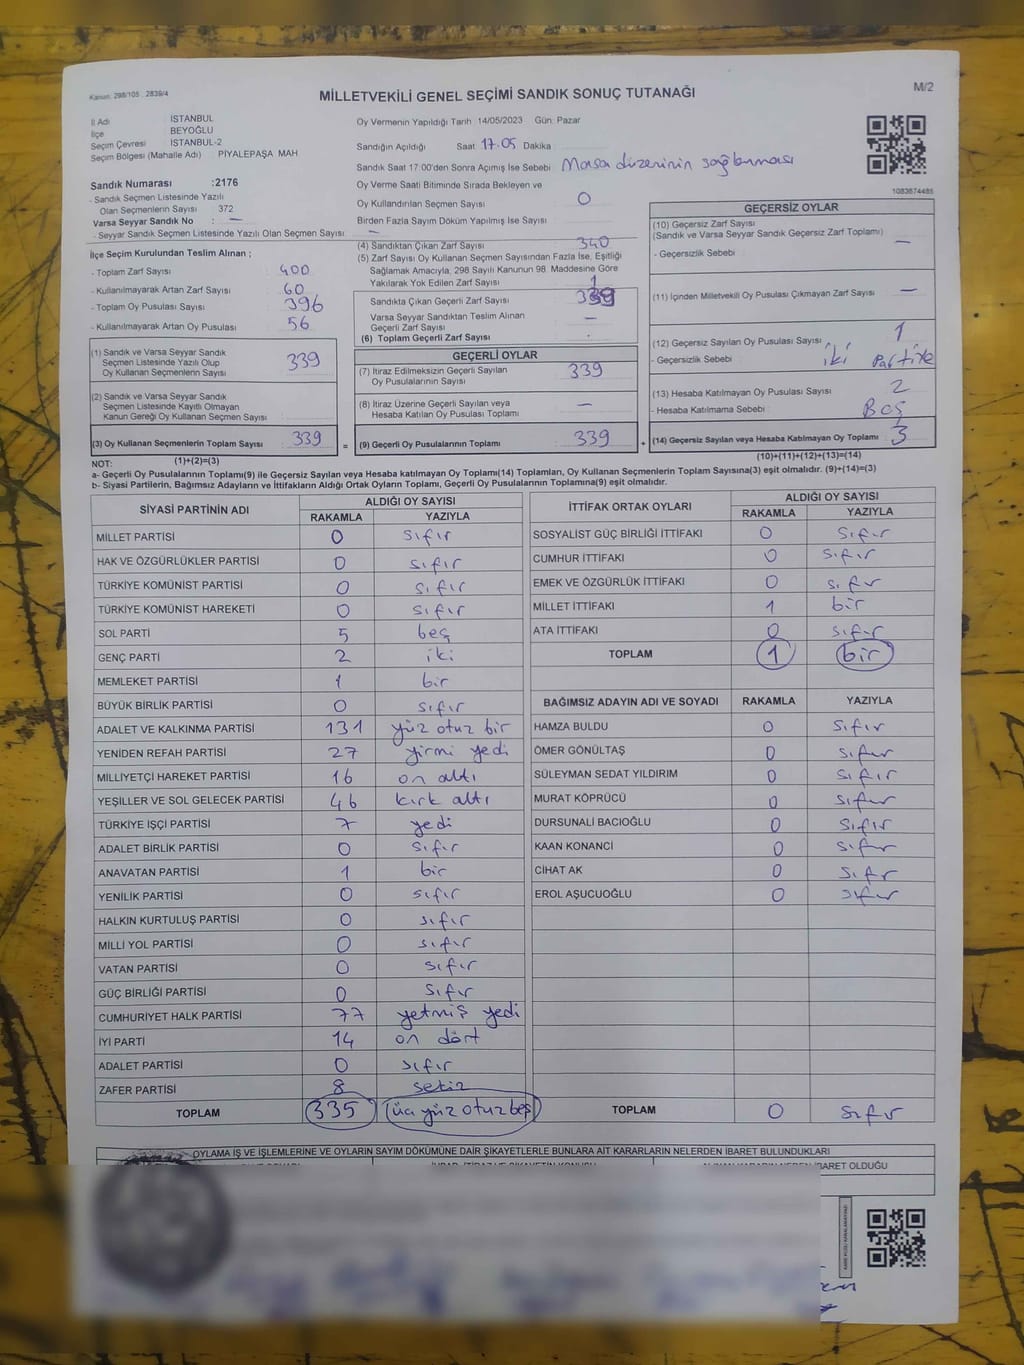 Kanun: 298/105 : 2839/4
MİLLETVEKİLİ GENEL SEÇİMİ SANDIK SONUÇ TUTANAĞI
M/2
İl Adı İSTANBUL
İlçe BEYOĞLU
Seçim Çevresi İSTANBUL-2
Seçim Bölgesi (Mahalle Adı) PİYALEPAŞA MAH
Sandık Numarası :2176
- Sandık Seçmen Listesinde Yazılı
Olan Seçmenlerin Sayısı 372
Varsa Seyyar Sandık No : —
- Seyyar Sandık Seçmen Listesinde Yazılı Olan Seçmen Sayısı: —
Oy Vermenin Yapıldığı Tarih 14/05/2023 Gün: Pazar
Sandığın Açıldığı Saat 17.05 Dakika
Sandık Saat 17:00'den Sonra Açımış İse Sebebi Masa düzeninin sağlanması
Oy Verme Saati Bitiminde Sırada Bekleyen ve
Oy Kullandırılan Seçmen Sayısı 0
Birden Fazla Sayım Döküm Yapılmış İse Sayısı
1083674485
İlçe Seçim Kurulundan Teslim Alınan ;
- Toplam Zarf Sayısı 400
- Kullanılmayarak Artan Zarf Sayısı 60
- Toplam Oy Pusulası Sayısı 396
- Kullanılmayarak Artan Oy Pusulası 56
(1) Sandık ve Varsa Seyyar Sandık
Seçmen Listesinde Yazılı Olup
Oy Kullanan Seçmenlerin Sayısı 339
(2) Sandık ve Varsa Seyyar Sandık
Seçmen Listesinde Kayıtlı Olmayan
Kanun Gereği Oy Kullanan Seçmen Sayısı
(3) Oy Kullanan Seçmenlerin Toplam Sayısı 339 =
(1)+(2)=(3)
(4) Sandıktan Çıkan Zarf Sayısı 340
(5) Zarf Sayısı Oy Kullanan Seçmen Sayısından Fazla İse, Eşitliği
Sağlamak Amacıyla, 298 Sayılı Kanunun 98. Maddesine Göre
Yakılarak Yok Edilen Zarf Sayısı 1
Sandıkta Çıkan Geçerli Zarf Sayısı 339
Varsa Seyyar Sandıktan Teslim Alınan
Geçerli Zarf Sayısı —
(6) Toplam Geçerli Zarf Sayısı
GEÇERLİ OYLAR
(7) İtiraz Edilmeksizin Geçerli Sayılan
Oy Pusulalarının Sayısı 339
(8) İtiraz Üzerine Geçerli Sayılan veya
Hesaba Katılan Oy Pusulası Toplamı —
(9) Geçerli Oy Pusulalarının Toplamı 339 +
GEÇERSİZ OYLAR
(10) Geçersiz Zarf Sayısı
(Sandık ve Varsa Seyyar Sandık Geçersiz Zarf Toplamı) —
- Geçersizlik Sebebi
(11) İçinden Milletvekili Oy Pusulası Çıkmayan Zarf Sayısı —
(12) Geçersiz Sayılan Oy Pusulası Sayısı 1
- Geçersizlik Sebebi iki Partiye
(13) Hesaba Katılmayan Oy Pusulası Sayısı 2
- Hesaba Katılmama Sebebi Boş
(14) Geçersiz Sayılan veya Hesaba Katılmayan Oy Toplamı 3
(10)+(11)+(12)+(13)=(14)
NOT:
a- Geçerli Oy Pusulalarının Toplamı(9) ile Geçersiz Sayılan veya Hesaba katılmayan Oy Toplamı(14) Toplamları, Oy Kullanan Seçmenlerin Toplam Sayısına(3) eşit olmalıdır. (9)+(14)=(3)
b- Siyasi Partilerin, Bağımsız Adayların ve İttifakların Aldığı Ortak Oyların Toplamı, Geçerli Oy Pusulalarının Toplamına(9) eşit olmalıdır.
SİYASİ PARTİNİN ADI ALDIĞI OY SAYISI
RAKAMLA YAZIYLA
MİLLET PARTİSİ 0 sıfır
HAK VE ÖZGÜRLÜKLER PARTİSİ 0 sıfır
TÜRKİYE KOMÜNİST PARTİSİ 0 sıfır
TÜRKİYE KOMÜNİST HAREKETİ 0 sıfır
SOL PARTİ 5 beş
GENÇ PARTİ 2 iki
MEMLEKET PARTİSİ 1 bir
BÜYÜK BİRLİK PARTİSİ 0 sıfır
ADALET VE KALKINMA PARTİSİ 131 yüz otuz bir
YENİDEN REFAH PARTİSİ 27 yirmi yedi
MİLLİYETÇİ HAREKET PARTİSİ 16 on altı
YEŞİLLER VE SOL GELECEK PARTİSİ 46 kırk altı
TÜRKİYE İŞÇİ PARTİSİ 7 yedi
ADALET BİRLİK PARTİSİ 0 sıfır
ANAVATAN PARTİSİ 1 bir
YENİLİK PARTİSİ 0 sıfır
HALKIN KURTULUŞ PARTİSİ 0 sıfır
MİLLİ YOL PARTİSİ 0 sıfır
VATAN PARTİSİ 0 sıfır
GÜÇ BİRLİĞİ PARTİSİ 0 sıfır
CUMHURİYET HALK PARTİSİ 77 yetmiş yedi
İYİ PARTİ 14 on dört
ADALET PARTİSİ 0 sıfır
ZAFER PARTİSİ 8 sekiz
TOPLAM 335 üçyüz otuzbeş
İTTİFAK ORTAK OYLARI ALDIĞI OY SAYISI
RAKAMLA YAZIYLA
SOSYALİST GÜÇ BİRLİĞİ İTTİFAKI 0 sıfır
CUMHUR İTTİFAKI 0 sıfır
EMEK VE ÖZGÜRLÜK İTTİFAKI 0 sıfır
MİLLET İTTİFAKI 1 bir
ATA İTTİFAKI 0 sıfır
TOPLAM 1 bir
BAĞIMSIZ ADAYIN ADI VE SOYADI RAKAMLA YAZIYLA
HAMZA BULDU 0 sıfır
ÖMER GÖNÜLTAŞ 0 sıfır
SÜLEYMAN SEDAT YILDIRIM 0 sıfır
MURAT KÖPRÜCÜ 0 sıfır
DURSUNALİ BACIOĞLU 0 sıfır
KAAN KONANCİ 0 sıfır
CİHAT AK 0 sıfır
EROL AŞUCUOĞLU 0 sıfır
TOPLAM 0 sıfır
OYLAMA İŞ VE İŞLEMLERİNE VE OYLARIN SAYIM DÖKÜMÜNE DAİR ŞİKAYETLERLE BUNLARA AİT KARARLARIN NELERDEN İBARET BULUNDUKLARI
İBARET OLDUĞU